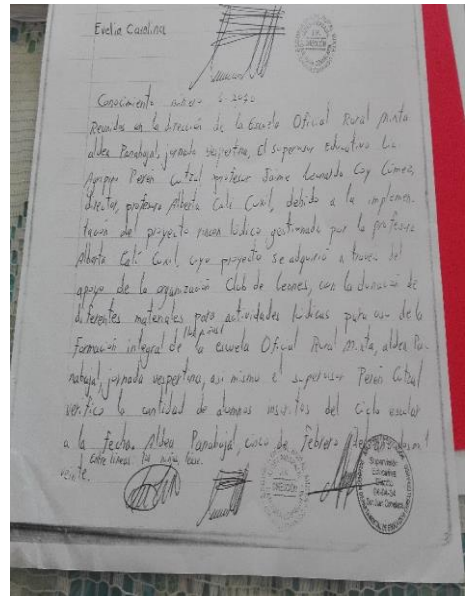 Evelia Carolina
DIRECCIÓN
Conocimiento número 6-2020
Reunidos en la dirección de la Escuela Oficial Rural Mixta
aldea Panabajal, jornada vespertina, El supervisor Educativo Lic.
Agripino Perén Cutzal profesor Jaime Leonardo Coy Gómez,
director, profesora Alberta Calí Cuxil, debido a la implemen-
tación del proyecto rincon lúdico gestionado por la profesora
Alberta Calí Cuxil, cuyo proyecto se adquirió a través del
apoyo de la organización Club de Leones, con la donación de
diferentes materiales para actividades lúdicas para uso de la
Formación integral de la escuela Oficial Rural Mixta, aldea Pa-
nabajal, jornada vespertina, asi mismo el supervisor Perén Cutzal
verifico la cantidad de alumnos inscritos del Ciclo escolar
a la fecha. Aldea Panabajal, cinco de Febrero
Entre lineas
veinte.
DIRECCIÓN
Supervisión
Educativa
Distrito
04-04-34
San Juan Comalapa